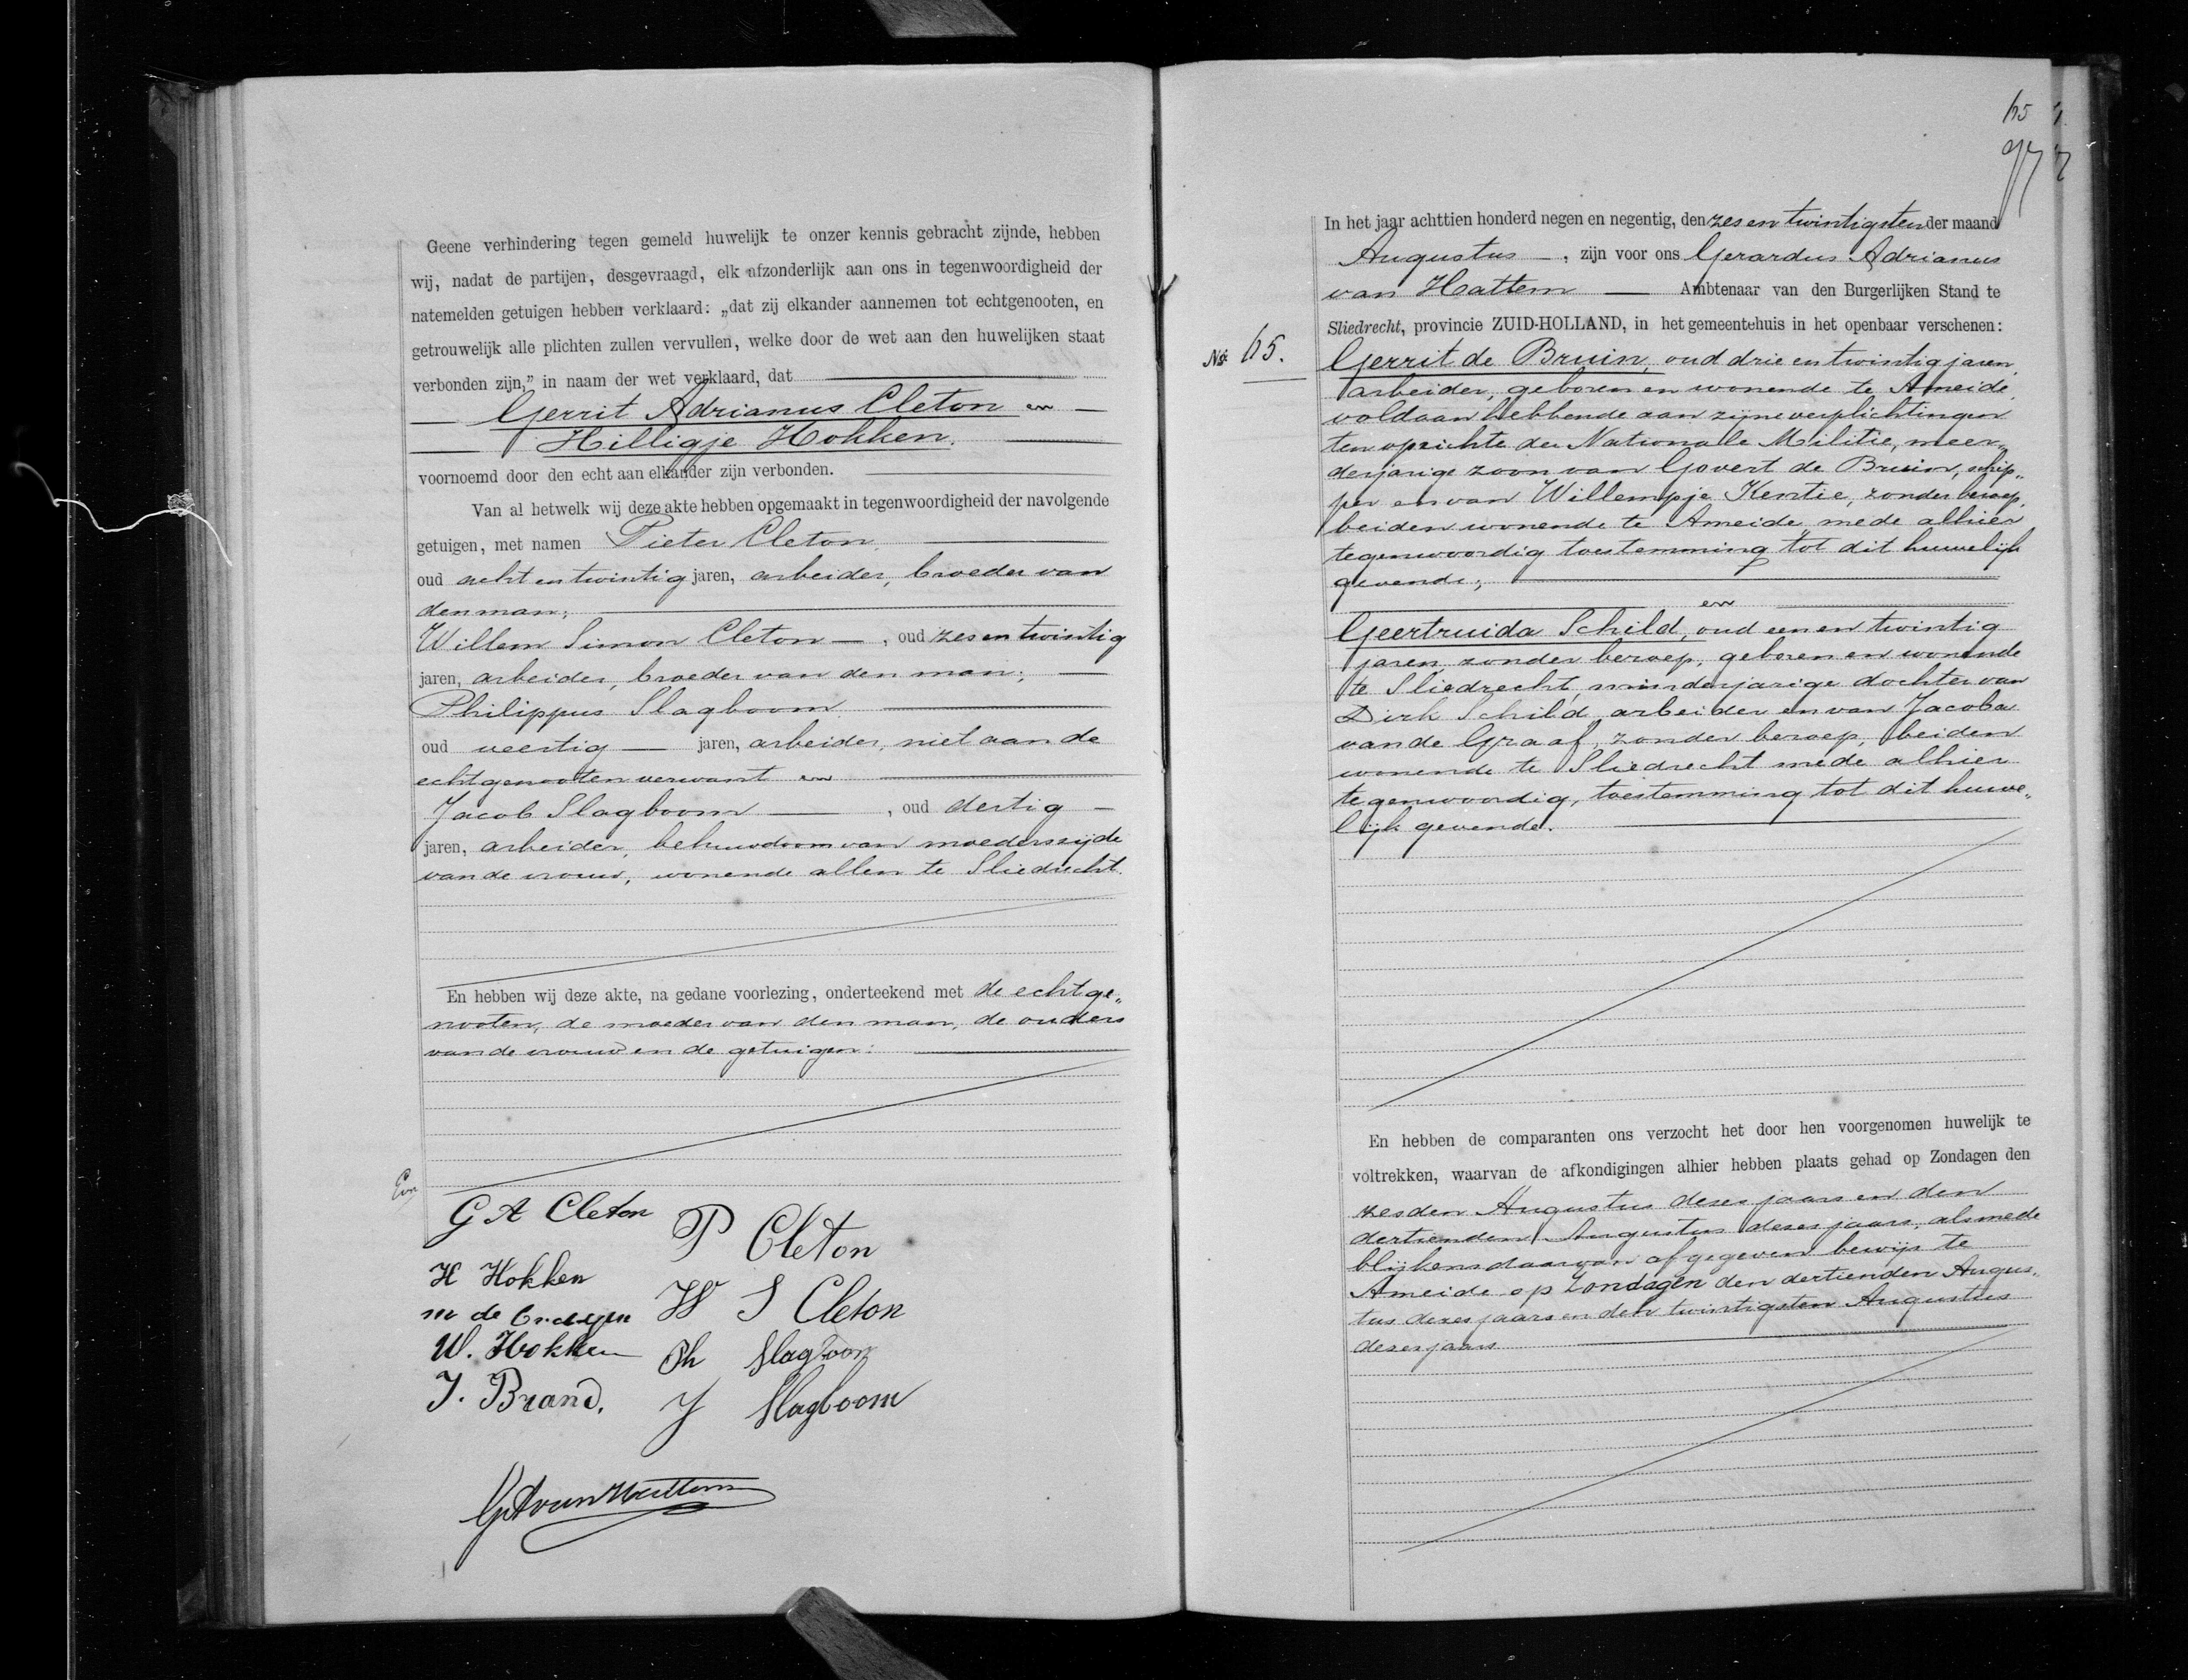 Geene verhindering tegen gemeld huwelijk te onzer kennis gebracht zijnde, hebben
wij, nadat de partijen, desgevraagd, elk afzonderlijk aan ons in tegenwoordigheid der
natemelden getuigen hebben verklaard: „dat zij elkander aannemen tot echtgenooten, en
getrouwelijk alle plichten zullen vervullen, welke door de wet aan den huwelijken staat
verbonden zijn,” in naam der wet verklaard, dat
Gerrit Adrianus Cleton en
Hilligje Hokken.
voornoemd door den echt aan elkander zijn verbonden.
Van al hetwelk wij deze akte hebben opgemaakt in tegenwoordigheid der navolgende
getuigen, met namen Pieter Cleton,
oud acht en twintig jaren, arbeider, broeder van
den man;
Willem Simon Cleton —, oud zes en twintig
jaren, arbeider, broeder van den man;
Philippus Slagboom
oud veertig — jaren, arbeider, niet aan de
echtgenooten verwant en
Jacob Slagboom —, oud dertig —
jaren, arbeider, behuwdoom van moederszijde
van de vrouw, wonende allen te Sliedrecht.
En hebben wij deze akte, na gedane voorlezing, onderteekend met de echtge„
nooten, de moeder van den man, de ouders
van de vrouw en de getuigen.
G A Cleton
P Cleton
H Hokken
W S Cleton
m de
W. Hokken
Ph Slagboom
J. Brand.
J Slagboom
GAvanHattem
65
97
In het jaar achttien honderd negen en negentig, den zes en twintigsten der maand
Augustus —, zijn voor ons Gerardus Adrianus
van Hattem — Ambtenaar van den Burgerlijken Stand te
Sliedrecht, provincie ZUID-HOLLAND, in het gemeentehuis in het openbaar verschenen:
No. 65.
Gerrit de Bruin, oud drie en twintig jaren,
arbeider, geboren en wonende te Ameide,
voldaan hebbende aan zijne verplichtingen
ten opzichte der Nationale Militie, meer„
derjarige zoon van Govert de Bruin, schip„
per en van Willempje Kentie, zonder beroep,
beiden wonende te Ameide mede alhier
tegenwoordig toestemming tot dit huwelijk
gevende;
en
Geertruida Schild, oud een en twintig
jaren, zonder beroep, geboren en wonende
te Sliedrecht, minderjarige dochter van
Dirk Schild, arbeider en van Jacoba
van de Graaf, zonder beroep, beiden
wonende te Sliedrecht mede alhier
tegenwoordig, toestemming tot dit huwe„
lijk gevende.
En hebben de comparanten ons verzocht het door hen voorgenomen huwelijk te
voltrekken, waarvan de afkondigingen alhier hebben plaats gehad op Zondagen den
zesden Augustus dezes jaars en den
dertienden Augustus dezes jaars, alsmede
blijkens daarvan afgegeven bewijs te
Ameide op Zondagen den dertienden Augus„
tus dezes jaars en den twintigsten Augustus
dezes jaars